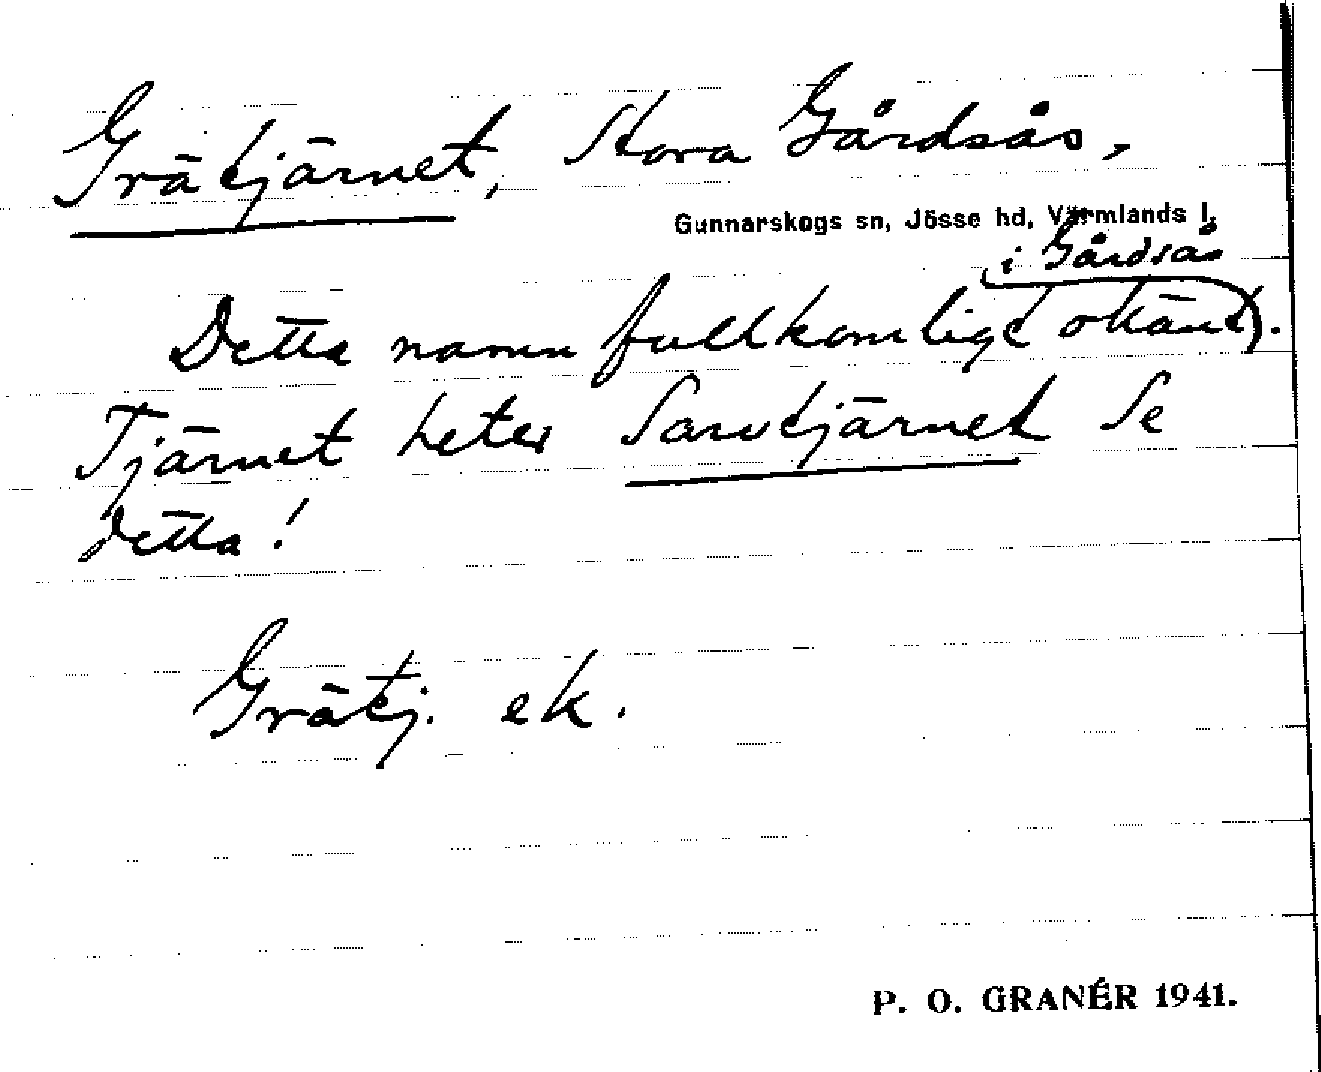 Grätjärnet, Stora Gårdsås,
Gunnarskogs sn, Jösse hd, Värmlands l.
i Gårdsås
Detta namn fullkomligt okänt).
Tjärnet heter Sandtjärnet Se
detta!
Grätj. ek.
P. O. GRANÉR 1941.